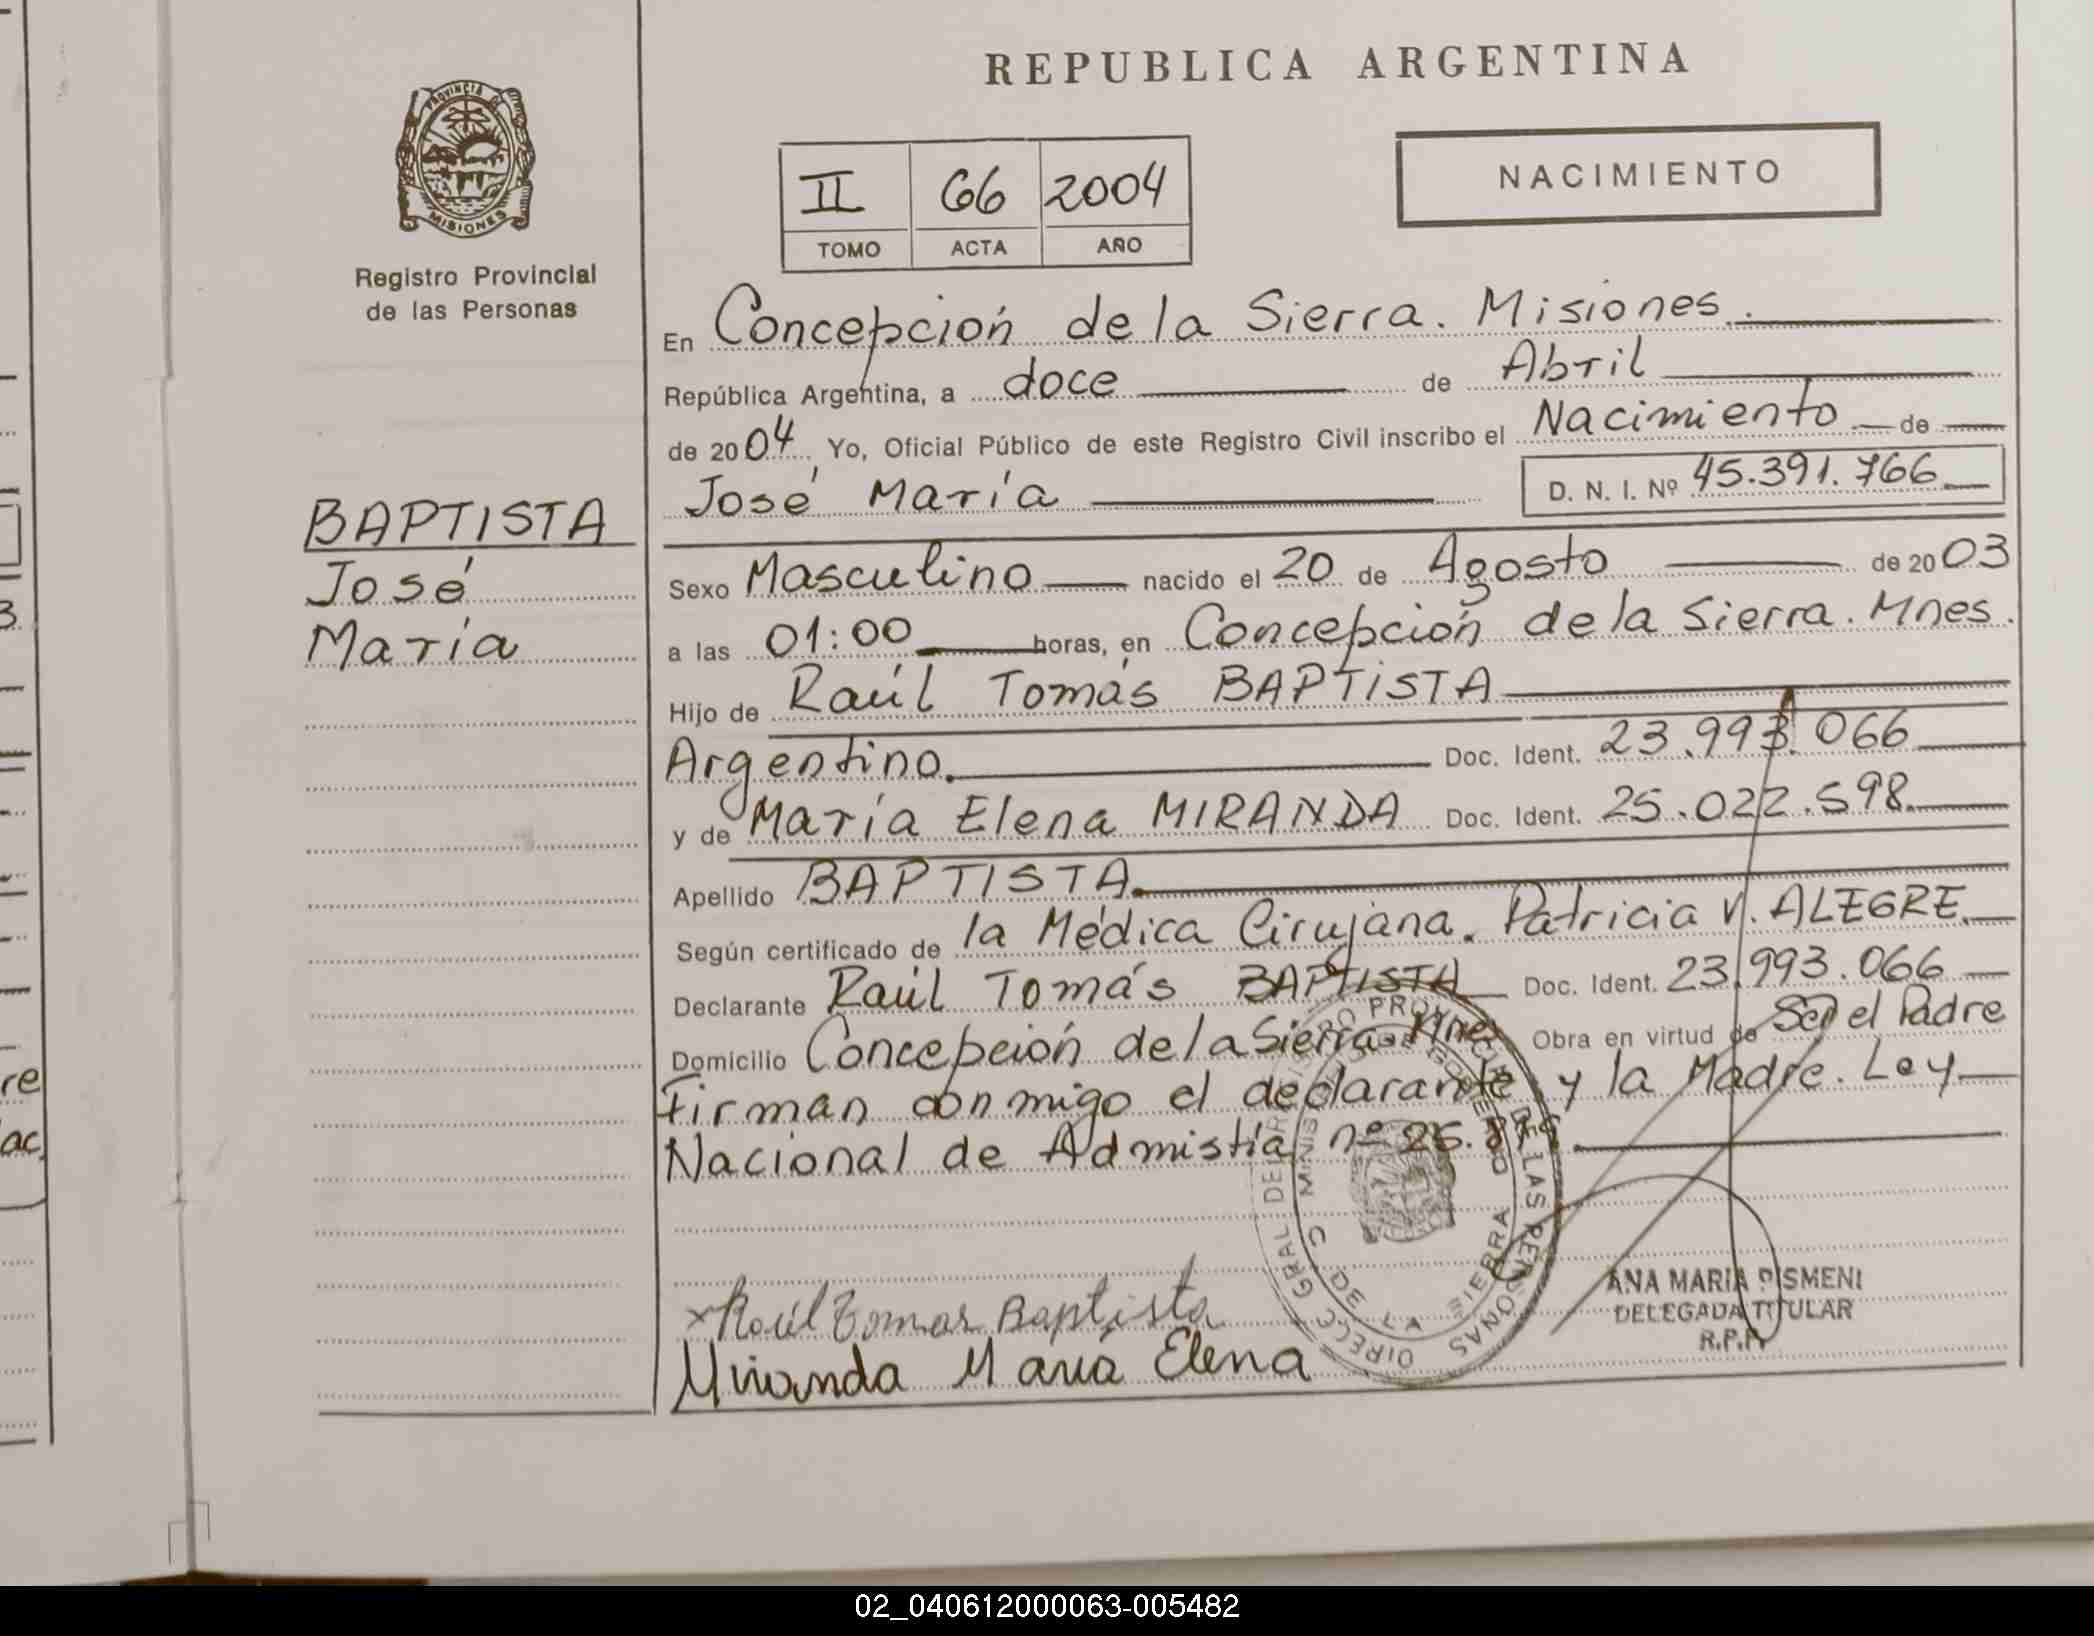 REPUBLICA ARGENTINA
PROVINCIA DE
MISIONES
Registro Provincial
de las Personas
II 66 2004
TOMO ACTA AÑO
NACIMIENTO
En Concepción de la Sierra. Misiones.
República Argentina, a doce de Abril
de 2004, Yo, Oficial Público de este Registro Civil inscribo el Nacimiento de
José María D. N. I. Nº 45.391.766
BAPTISTA
José
María
Sexo Masculino nacido el 20 de Agosto de 2003
a las 01:00 horas, en Concepción de la Sierra. Mnes.
Hijo de Raúl Tomás BAPTISTA
Argentino. Doc. Ident. 23.993.066
y de María Elena MIRANDA Doc. Ident. 25.022.598.
Apellido BAPTISTA.
Según certificado de la Médica Cirujana. Patricia V. ALEGRE.
Declarante Raúl Tomás BAPTISTA Doc. Ident. 23.993.066
Domicilio Concepción de la Sierra. Mnes Obra en virtud de Ser el Padre
Firman conmigo el declarante y la Madre. Ley
Nacional de Admistía nº 25.
x Raúl Tomas Baptista
Miranda Maria Elena
ANA MARIA PISMENI
DELEGADA TITULAR
R.P.P.
02_040612000063-005482